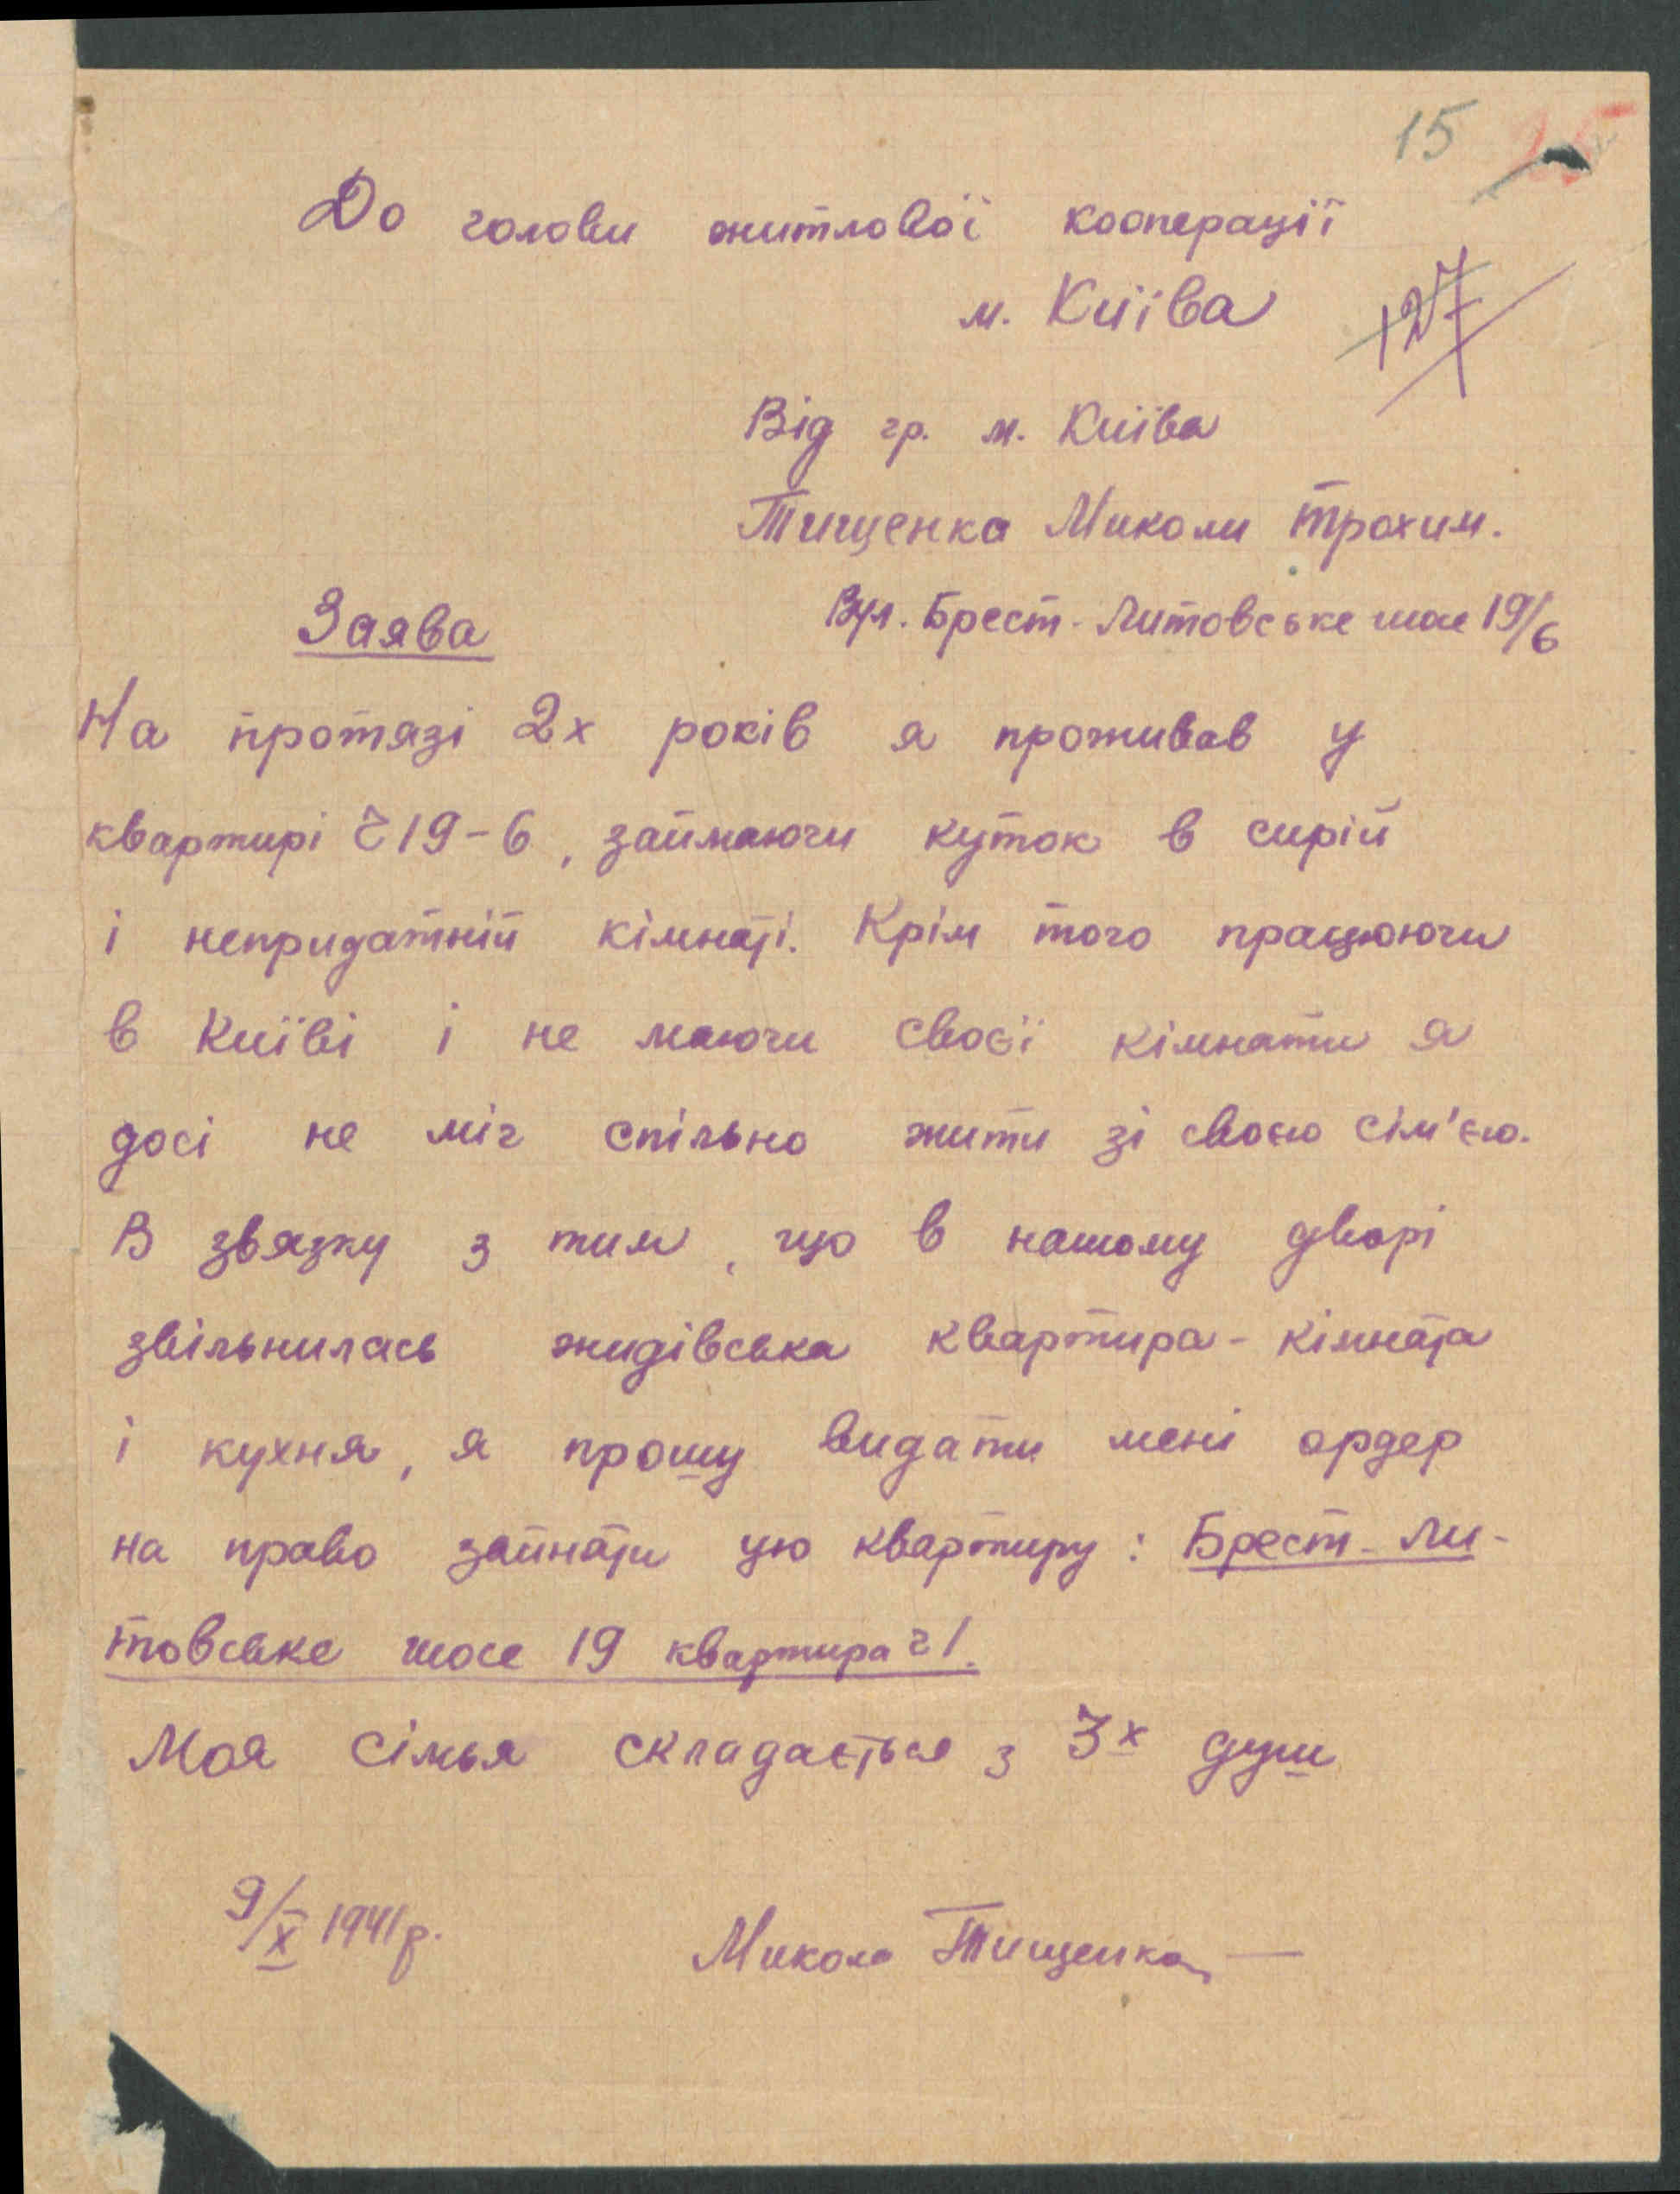 15
До голови житлової кооперації
м. Київа
127
Від гр. м. Київа
Тищенка Миколи Трохим.
Вул. Брест-Литовське шосе 19/6
Заява
На протязі 2х років я проживав у
квартирі ч 19-6, займаючи куток в сирій
і непридатній кімнаті. Крім того працюючи
в Київі і не маючи своєї кімнати я
досі не міг спільно жити зі своєю сім'єю.
В звязку з тим, що в нашому дворі
звільнилась жидівська квартира-кімната
і кухня, я прошу видати мені ордер
на право зайняти цю квартиру: Брест-Ли-
товське шосе 19 квартира ч 1.
Моя сімья складається з 3х душ
9/X 1941р.
Микола Тищенко